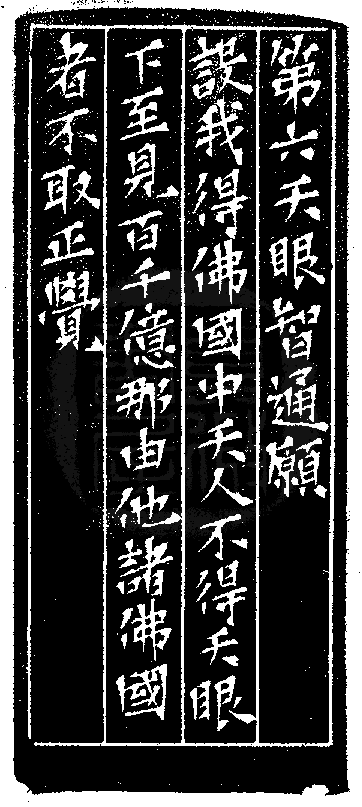 第六天眼智通願
設我得佛國中天人不得天眼
下至見百千億那由他諸佛國
者不取正覺